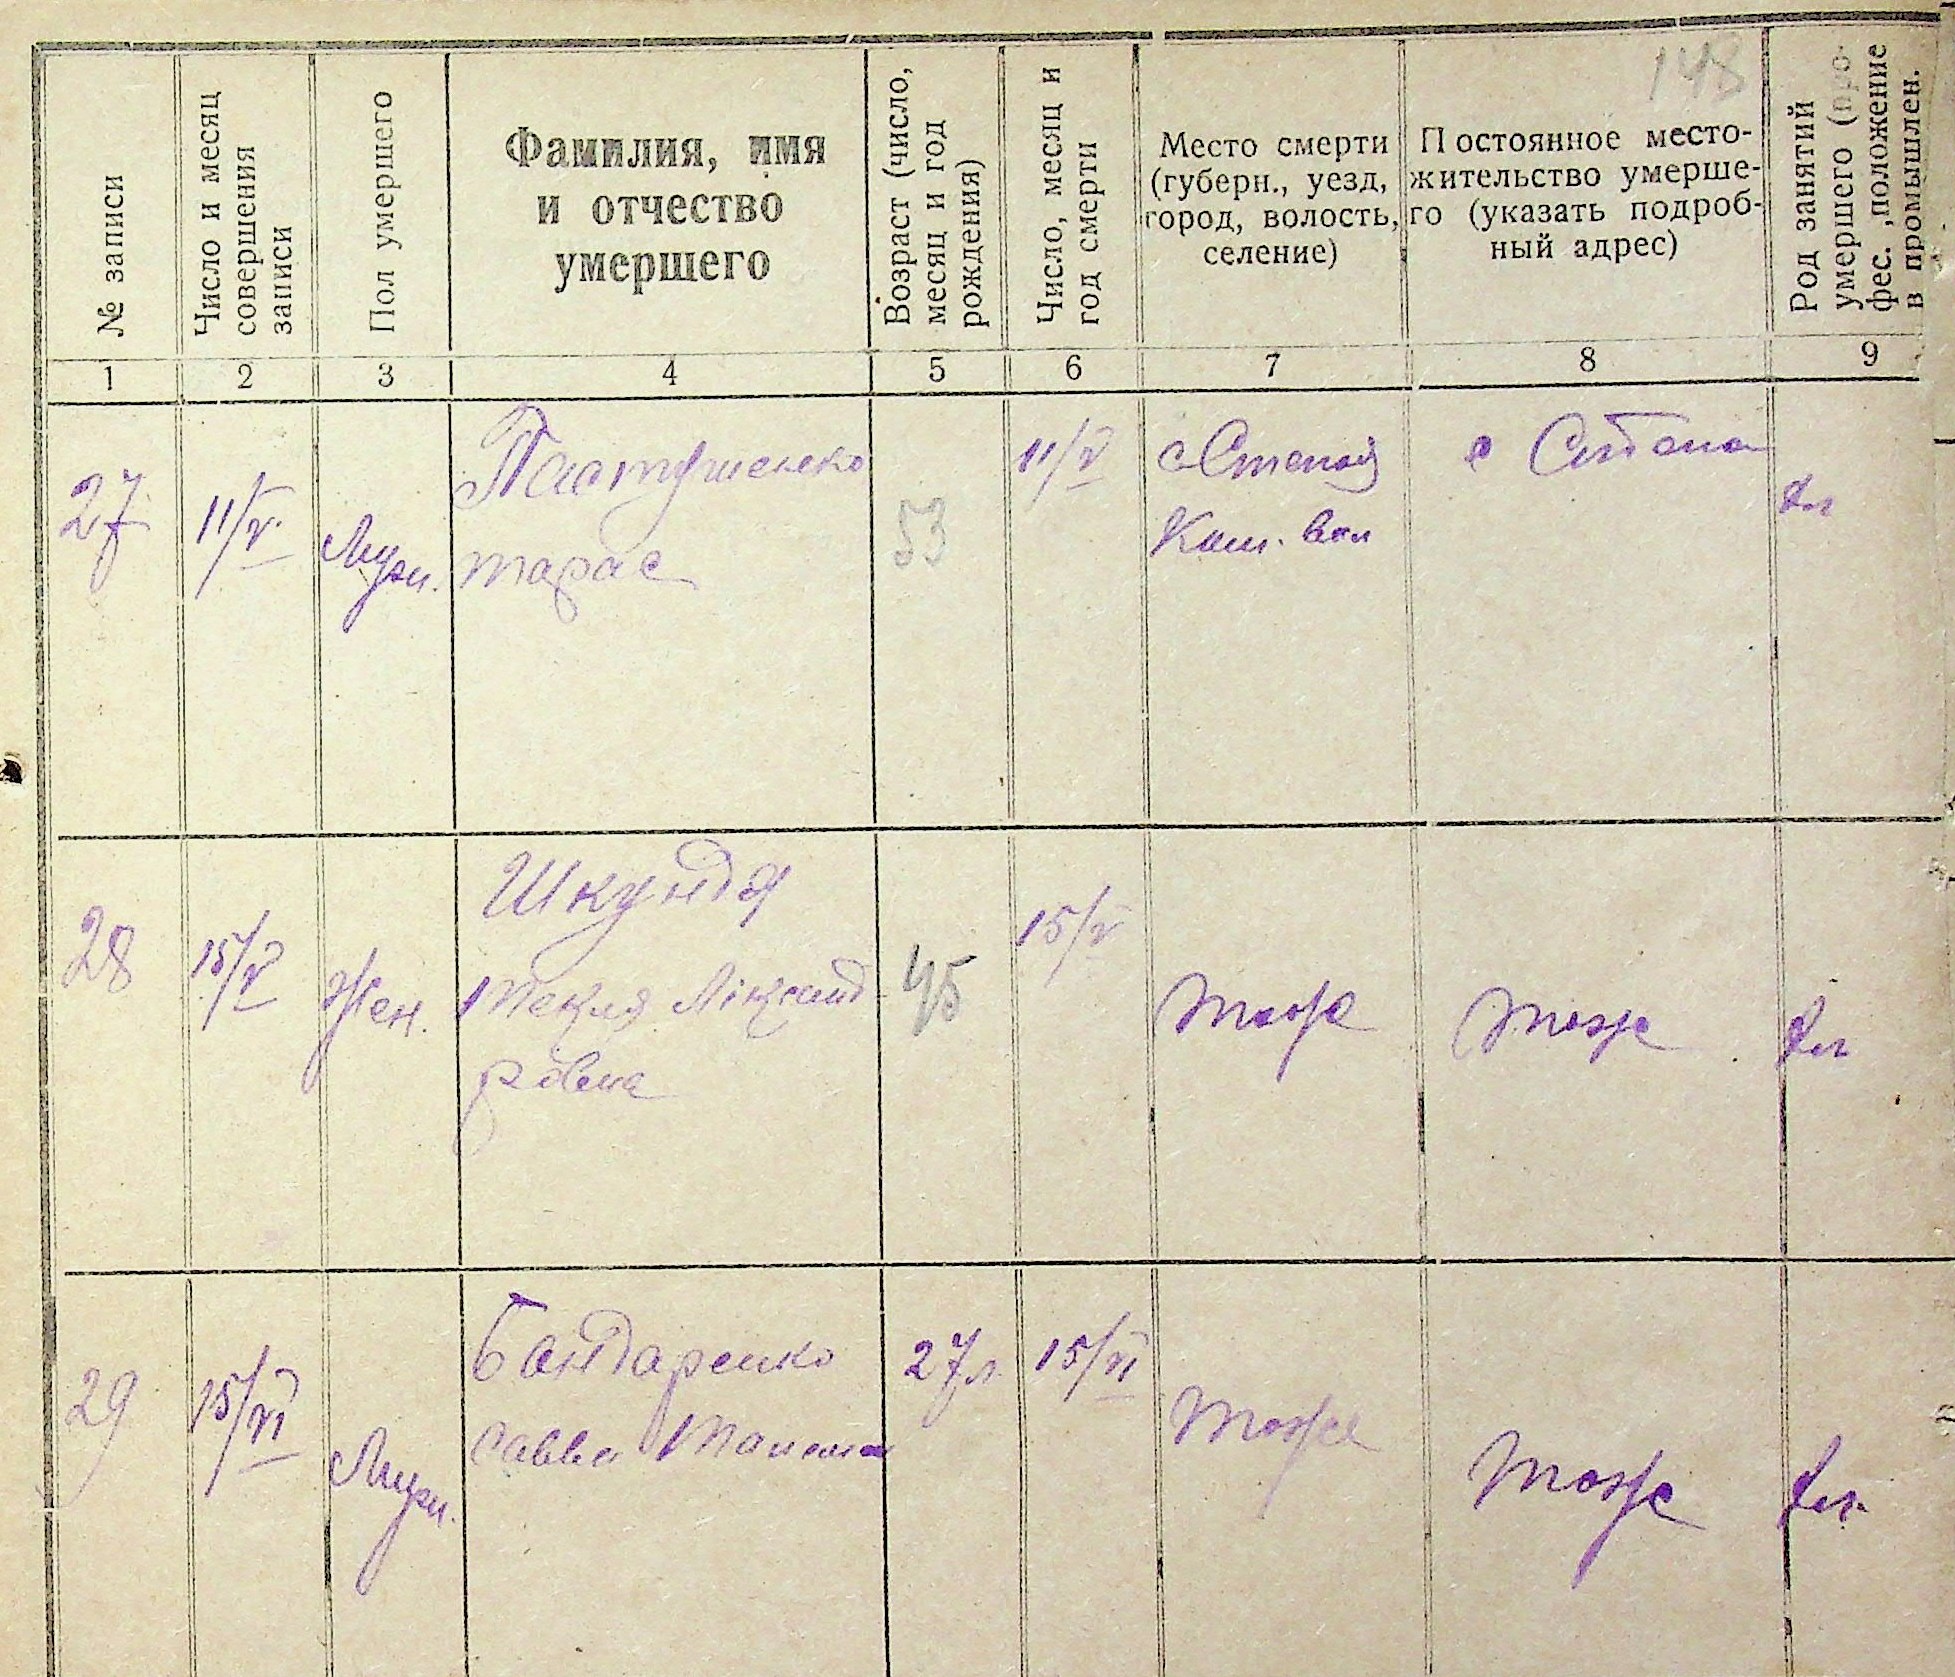 148
№ записи
Число и месяц
совершения
записи
Пол умершего
Фамилия, имя
и отчество
умершего
Возраст (число,
месяц и год
рождения)
Число, месяц и
год смерти
Место смерти
(губерн., уезд,
город, волость,
селение)
Постоянное место-
жительство умерше-
го (указать подроб-
ный адрес)
Род занятий
умершего (про-
фес., положение
в промышлен.
1
2
3
4
5
6
7
8
9
27
11/V
Муж.
Пастушенко
Тарас
53
11/V
с
вол
с
28
15/V
Жен.
Шкундя
Текля Аіксанд
ровна
45
15/V
тоже
тоже
29
15/VI
Муж.
Бандаренко
Савва
27 л.
15/VI
тоже
тоже